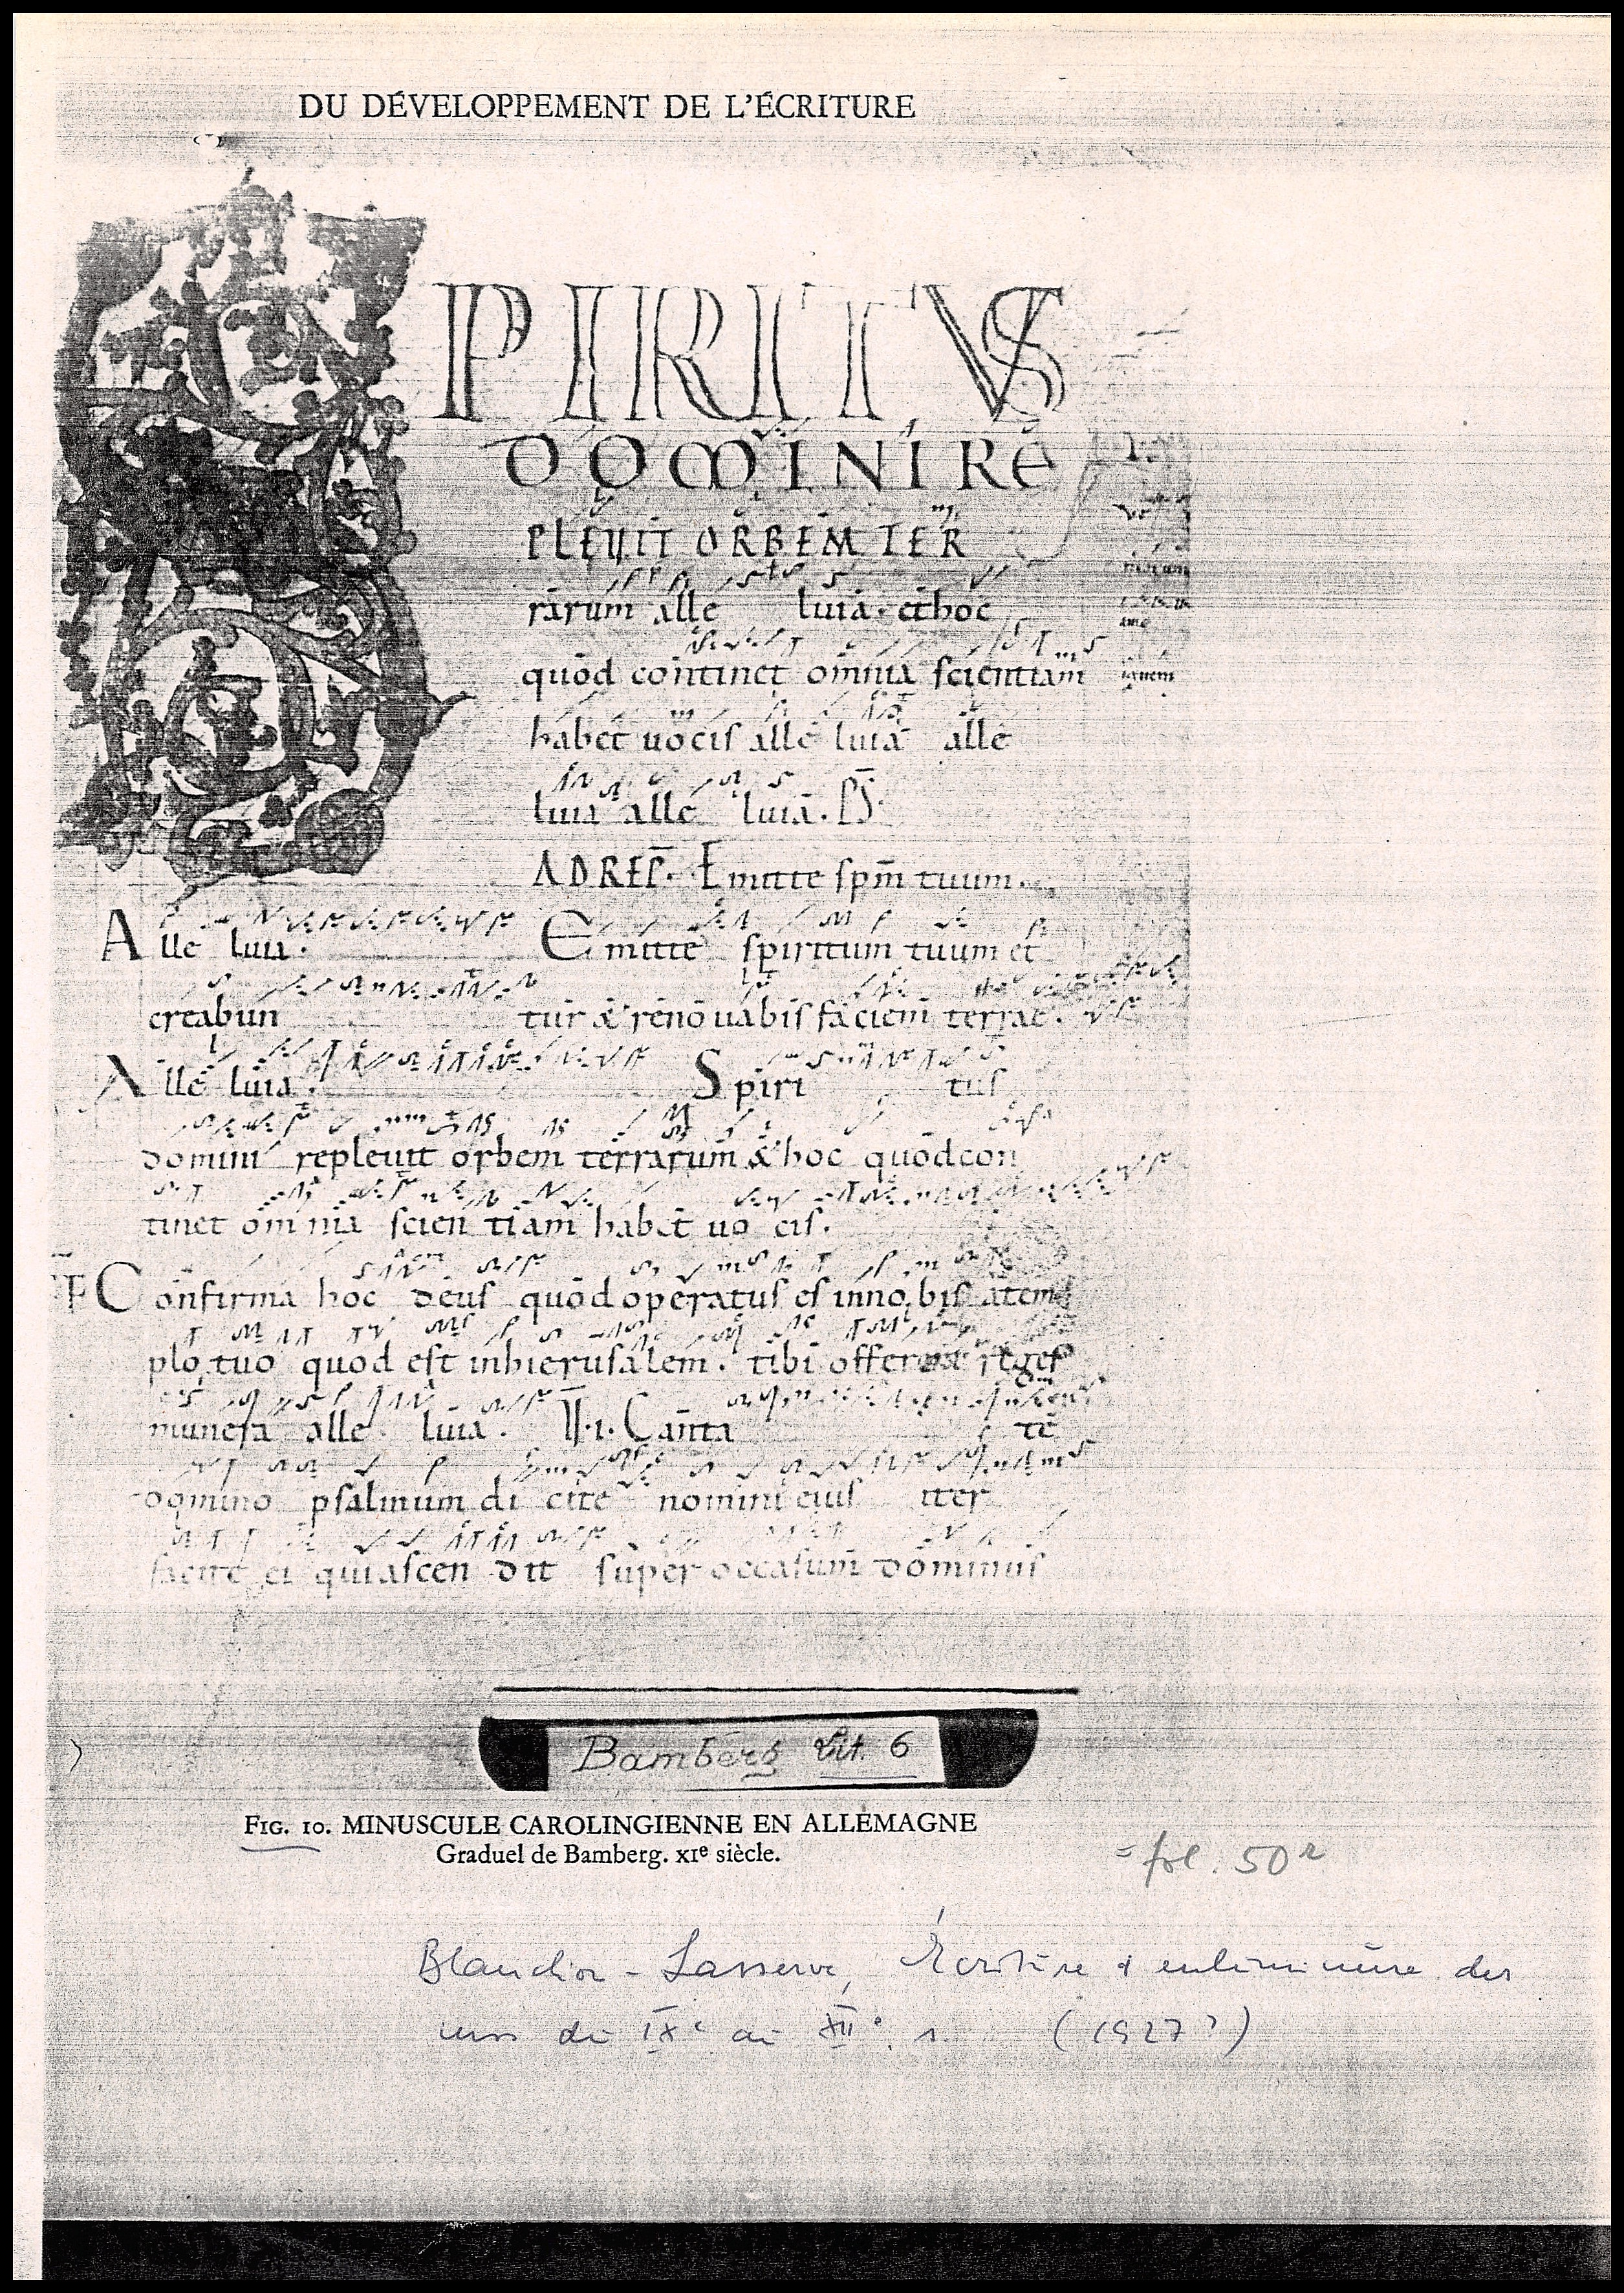 DU DÉVELOPPEMENT DE L'ÉCRITURE
SPIRITVS
DOMINI RE
PLEVIT ORBEM TER
rarum alle luia. et hoc
quod continet omnia scientiam
habet uocis alle luia alle
luia alle luia. PS
AD REP. Emitte spm tuum.
Alle luia. Emitte spiritum tuum et
creabun tur & renouabis faciem terrae.
Alle luia. Spiri tus
domini repleuit orbem terrarum & hoc quod con
tinet omnia scien tiam habet uo cis.
OF Confirma hoc deus quod operatus es in nobis a tem
plo tuo quod est inhierusalem. tibi offerent reges
munera alle luia. V.I. Canta te
domino psalmum di cite nomini eius iter
facite ei quiascen dit super occasum dominus
Bamberg Lit. 6
FIG. 10. MINUSCULE CAROLINGIENNE EN ALLEMAGNE
Graduel de Bamberg. XIe siècle.
= fol. 50r
Blanchon-Lasserve, Écriture & enluminure des
mss du IXe au XIIe s. (1927?)